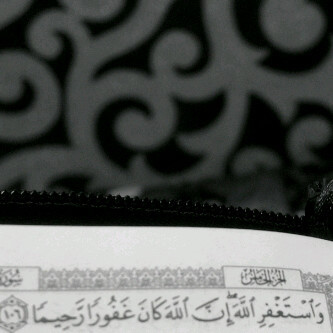 الجزء الخامس سورة
وَٱسْتَغْفِرِ ٱللَّهَ ۖ إِنَّ ٱللَّهَ كَانَ غَفُورًا رَّحِيمًا ١٠٦